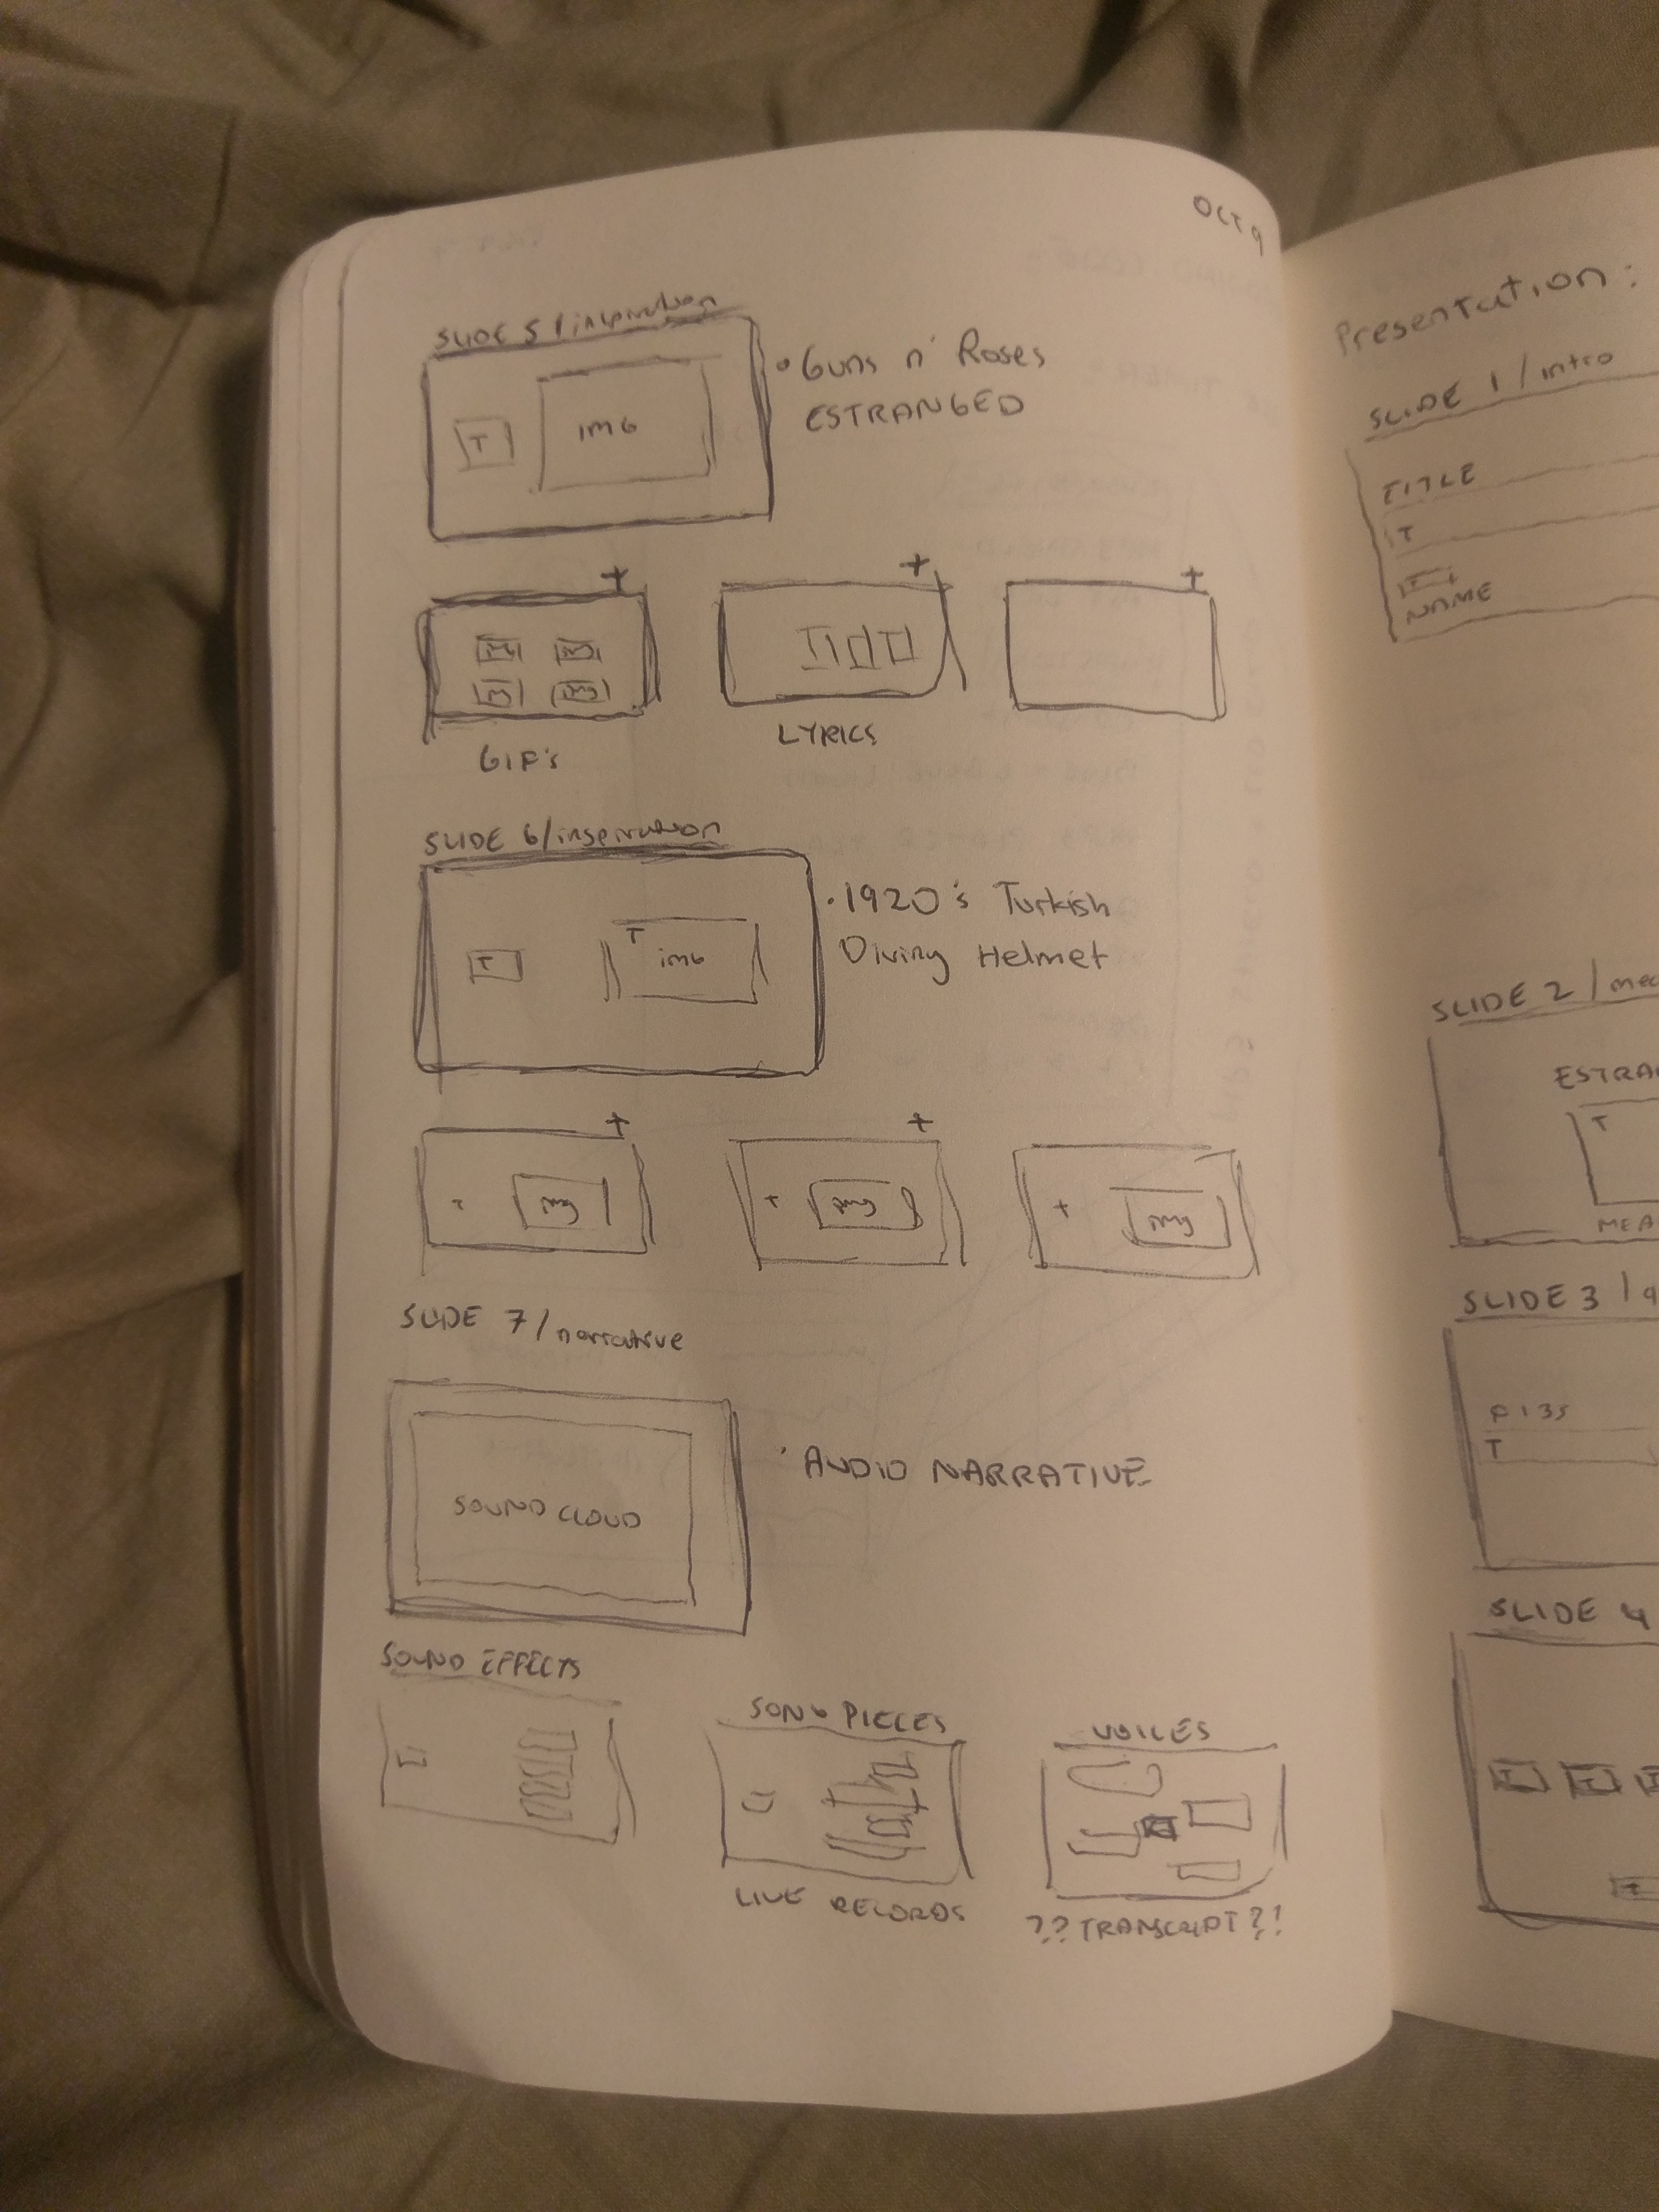 OCT 9
SLIDE 5 / inspiration
T
img
• Guns n' Roses
ESTRANGED
+
+
+
img img
img img
GIF's
LYRICS
SLIDE 6/inspiration
T
T
img
• 1920's Turkish
Diving Helmet
+
+
T
img
+
img
+
img
SLIDE 7/narrative
SOUND CLOUD
• AUDIO NARRATIVE
SOUND EFFECTS
SONG PIECES
VOICES
LIVE RECORDS
??TRANSCRIPT?!
Presentation:
SLIDE 1 / intro
TITLE
T
T
NAME
SLIDE 2 / mea
ESTRA
T
MEA
SLIDE 3 /
T
SLIDE 4
T T T